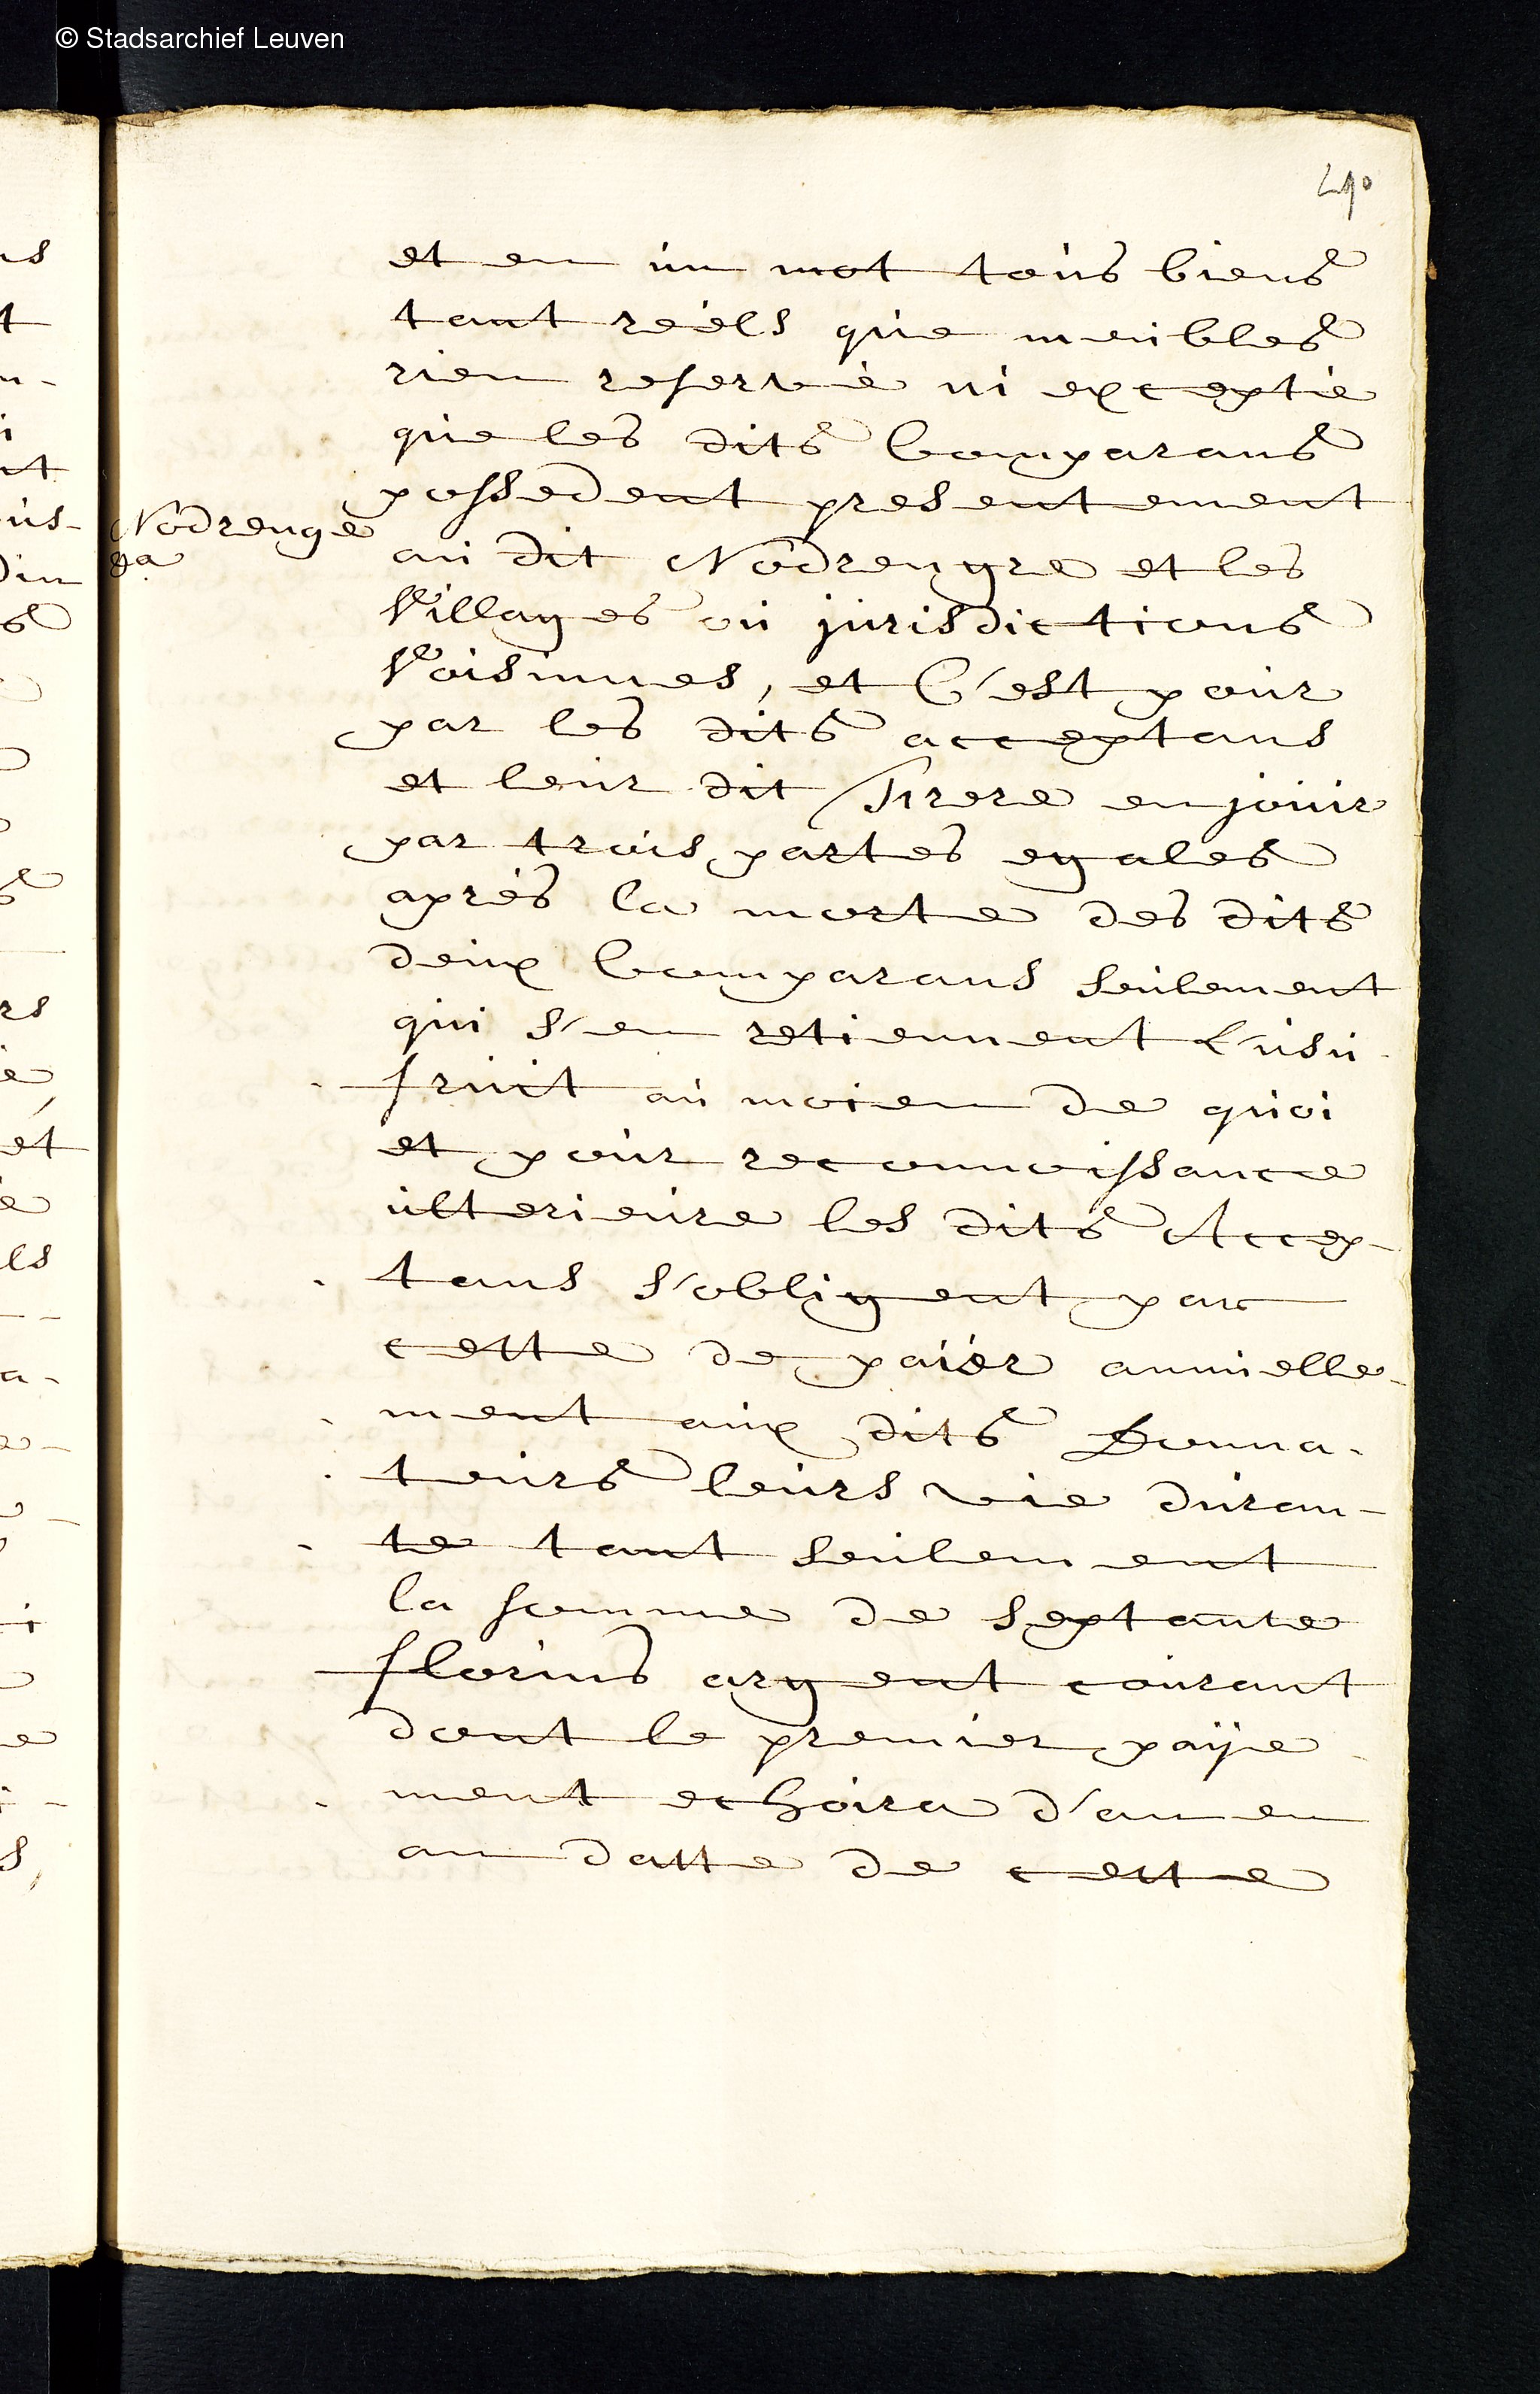 © Stadsarchief Leuven
et en un mot tous biens
tant réels que meubles
rien reservé ni excepté
que les dits Comparans
possedent presentement
Nodrenge
au dit Nodrengre et les
Villages ou jurisdictions
Voisinnes, et C'est pour
par les dits acceptans
et leur dit Frere en joüir
par trois partes egales
après la morte des dits
deux Comparans seulement
qui s'en retiennent L'usu
fruit au moien de quoi
et pour reconnoissance
ulterieure les dits Accep-
tans s'obligent par
cette de paiër annuelle-
ment aux dits Donna-
teurs leurs vie duran-
te tant seulement
la somme de septante
florins argent courant
dont le premier païje
ment echoira d'an en
an datte de cette